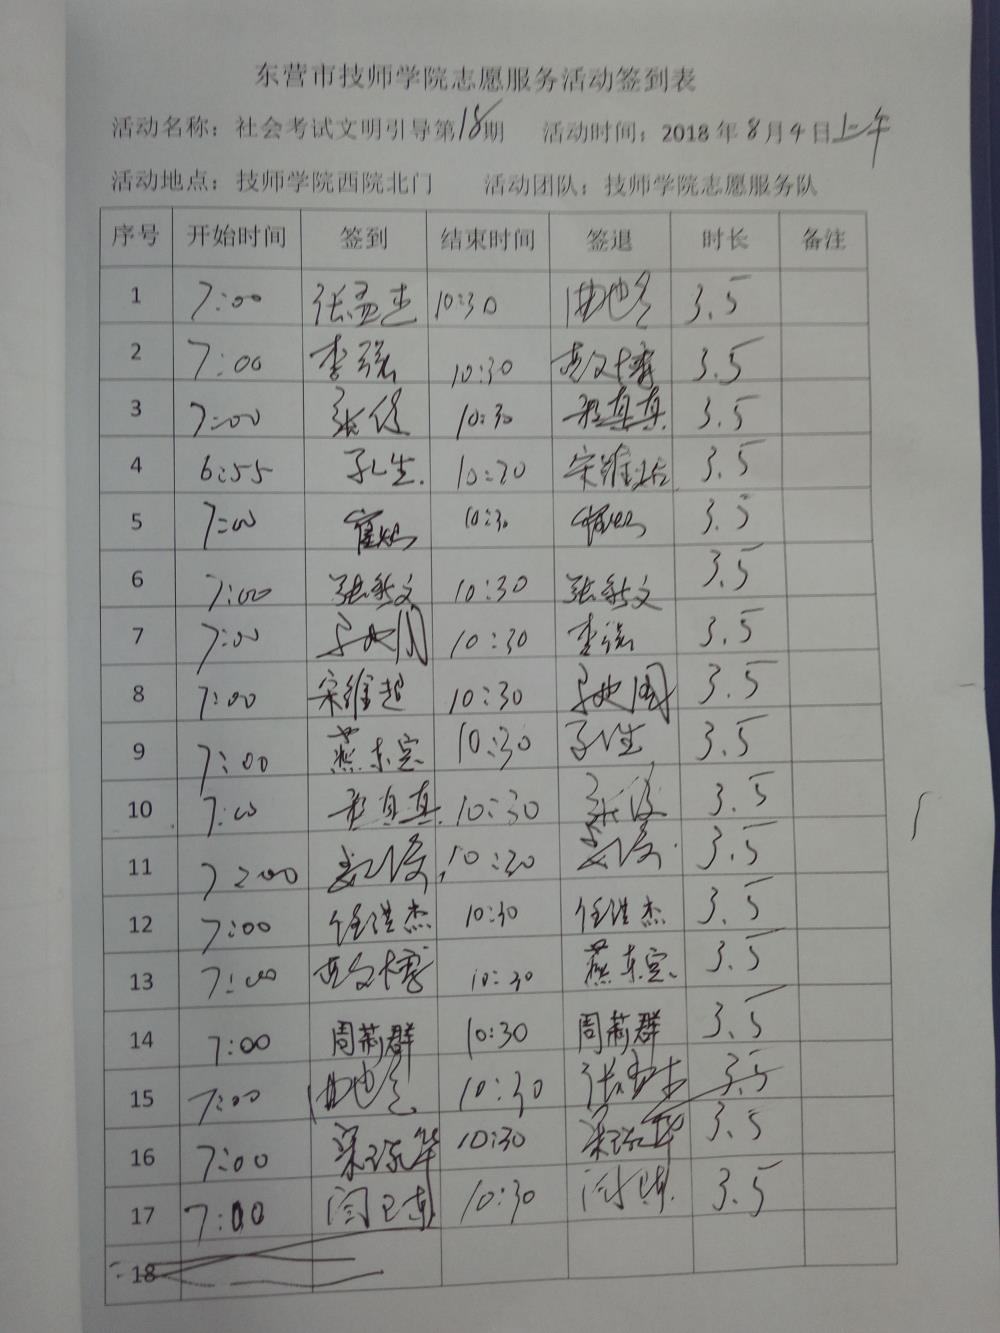 东营市技师学院志愿服务活动签到表
活动名称：社会考试文明引导第18期 活动时间：2018年8月4日上午
活动地点：技师学院西院北门 活动团队：技师学院志愿服务队
序号 开始时间 签到 结束时间 签退 时长 备注
1 7:00 张孟杰 10:30 3.5
2 7:00 李强 10:30 3.5
3 7:00 10:30 真真 3.5
4 6:55 孔生 10:20 宋维 3.5
5 7:00 崔灿 10:30 崔灿 3.5
6 7:00 张新文 10:30 张新文 3.5
7 7:00 10:30 李强 3.5
8 7:00 宋维超 10:30 3.5
9 7:00 燕东宝 10:30 孔生 3.5
10 7:00 真真 10:30 3.5
11 7:00 10:30 3.5
12 7:00 任洪杰 10:30 任洪杰 3.5
13 7:00 文博 10:30 燕东宝 3.5
14 7:00 周莉群 10:30 周莉群 3.5
15 7:00 10:30 张孟杰 3.5
16 7:00 10:30 3.5
17 7:00 闫 10:30 闫 3.5
18